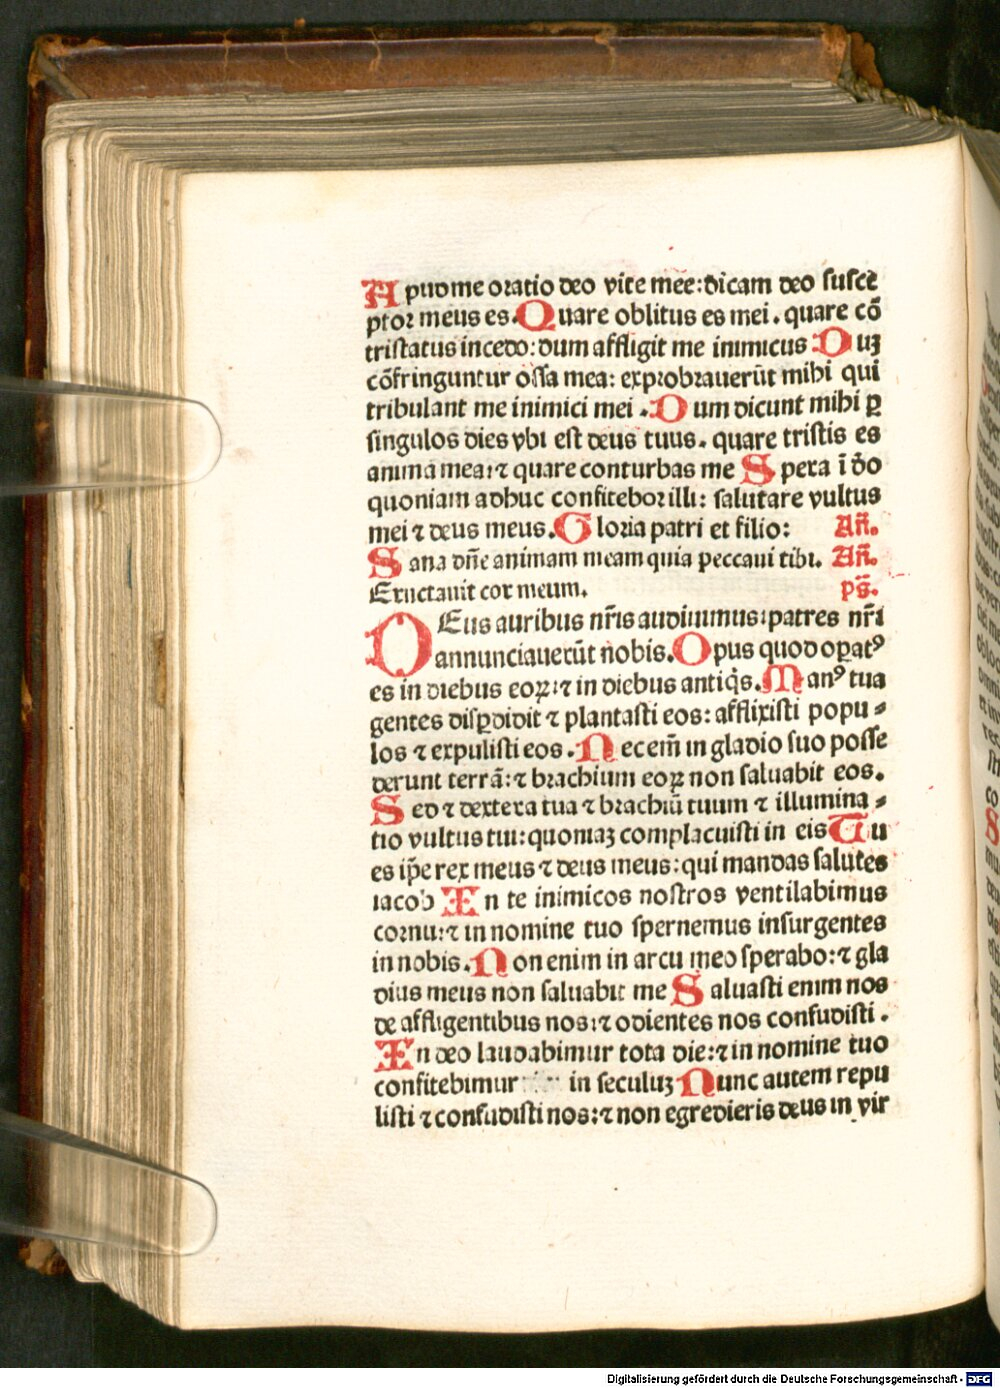 Apud me oratio deo vite mee: dicam deo susce
ptor meus es. Quare oblitus es mei. quare cō
tristatus incedo: dum affligit me inimicus: Duꝫ
cōfringuntur ossa mea: exprobrauerūt mihi qui
tribulant me inimici mei. Dum dicunt mihi ꝑ
singulos dies vbi est deus tuus. quare tristis es
anima mea: ⁊ quare conturbas me Spera ī deo
quoniam adhuc confitebor illi: salutare vultus
mei ⁊ deus meus. Gloria patri et filio: Añ.
Sana dñe animam meam quia peccaui tibi. Añ.
Eructauit cor meum. ps̄.
DEus auribus nr̄is audiuimus: patres nr̄i
annunciauerūt nobis. Opus quod oꝑatꝰ
es in diebus eoꝝ: ⁊ in diebus antiq̄s. Manꝰ tua
gentes disꝑdidit ⁊ plantasti eos: afflixisti popu-
los ⁊ expulisti eos. Nec em̄ in gladio suo posse
derunt terrā: ⁊ brachium eoꝝ non saluabit eos.
Sed ⁊ dextera tua ⁊ brachiū tuum ⁊ illumina-
tio vultus tui: quoniaꝫ complacuisti in eis Tu
es ip̄e rex meus ⁊ deus meus: qui mandas salutes
iacob In te inimicos nostros ventilabimus
cornu: ⁊ in nomine tuo spernemus insurgentes
in nobis. Non enim in arcu meo sperabo: ⁊ gla
dius meus non saluabit me Saluasti enim nos
de affligentibus nos: ⁊ odientes nos confudisti.
In deo laudabimur tota die: ⁊ in nomine tuo
confitebimur in seculuꝫ Nunc autem repu
listi ⁊ confudisti nos: ⁊ non egredieris deus in vir
Digitalisierung gefördert durch die Deutsche Forschungsgemeinschaft - DFG